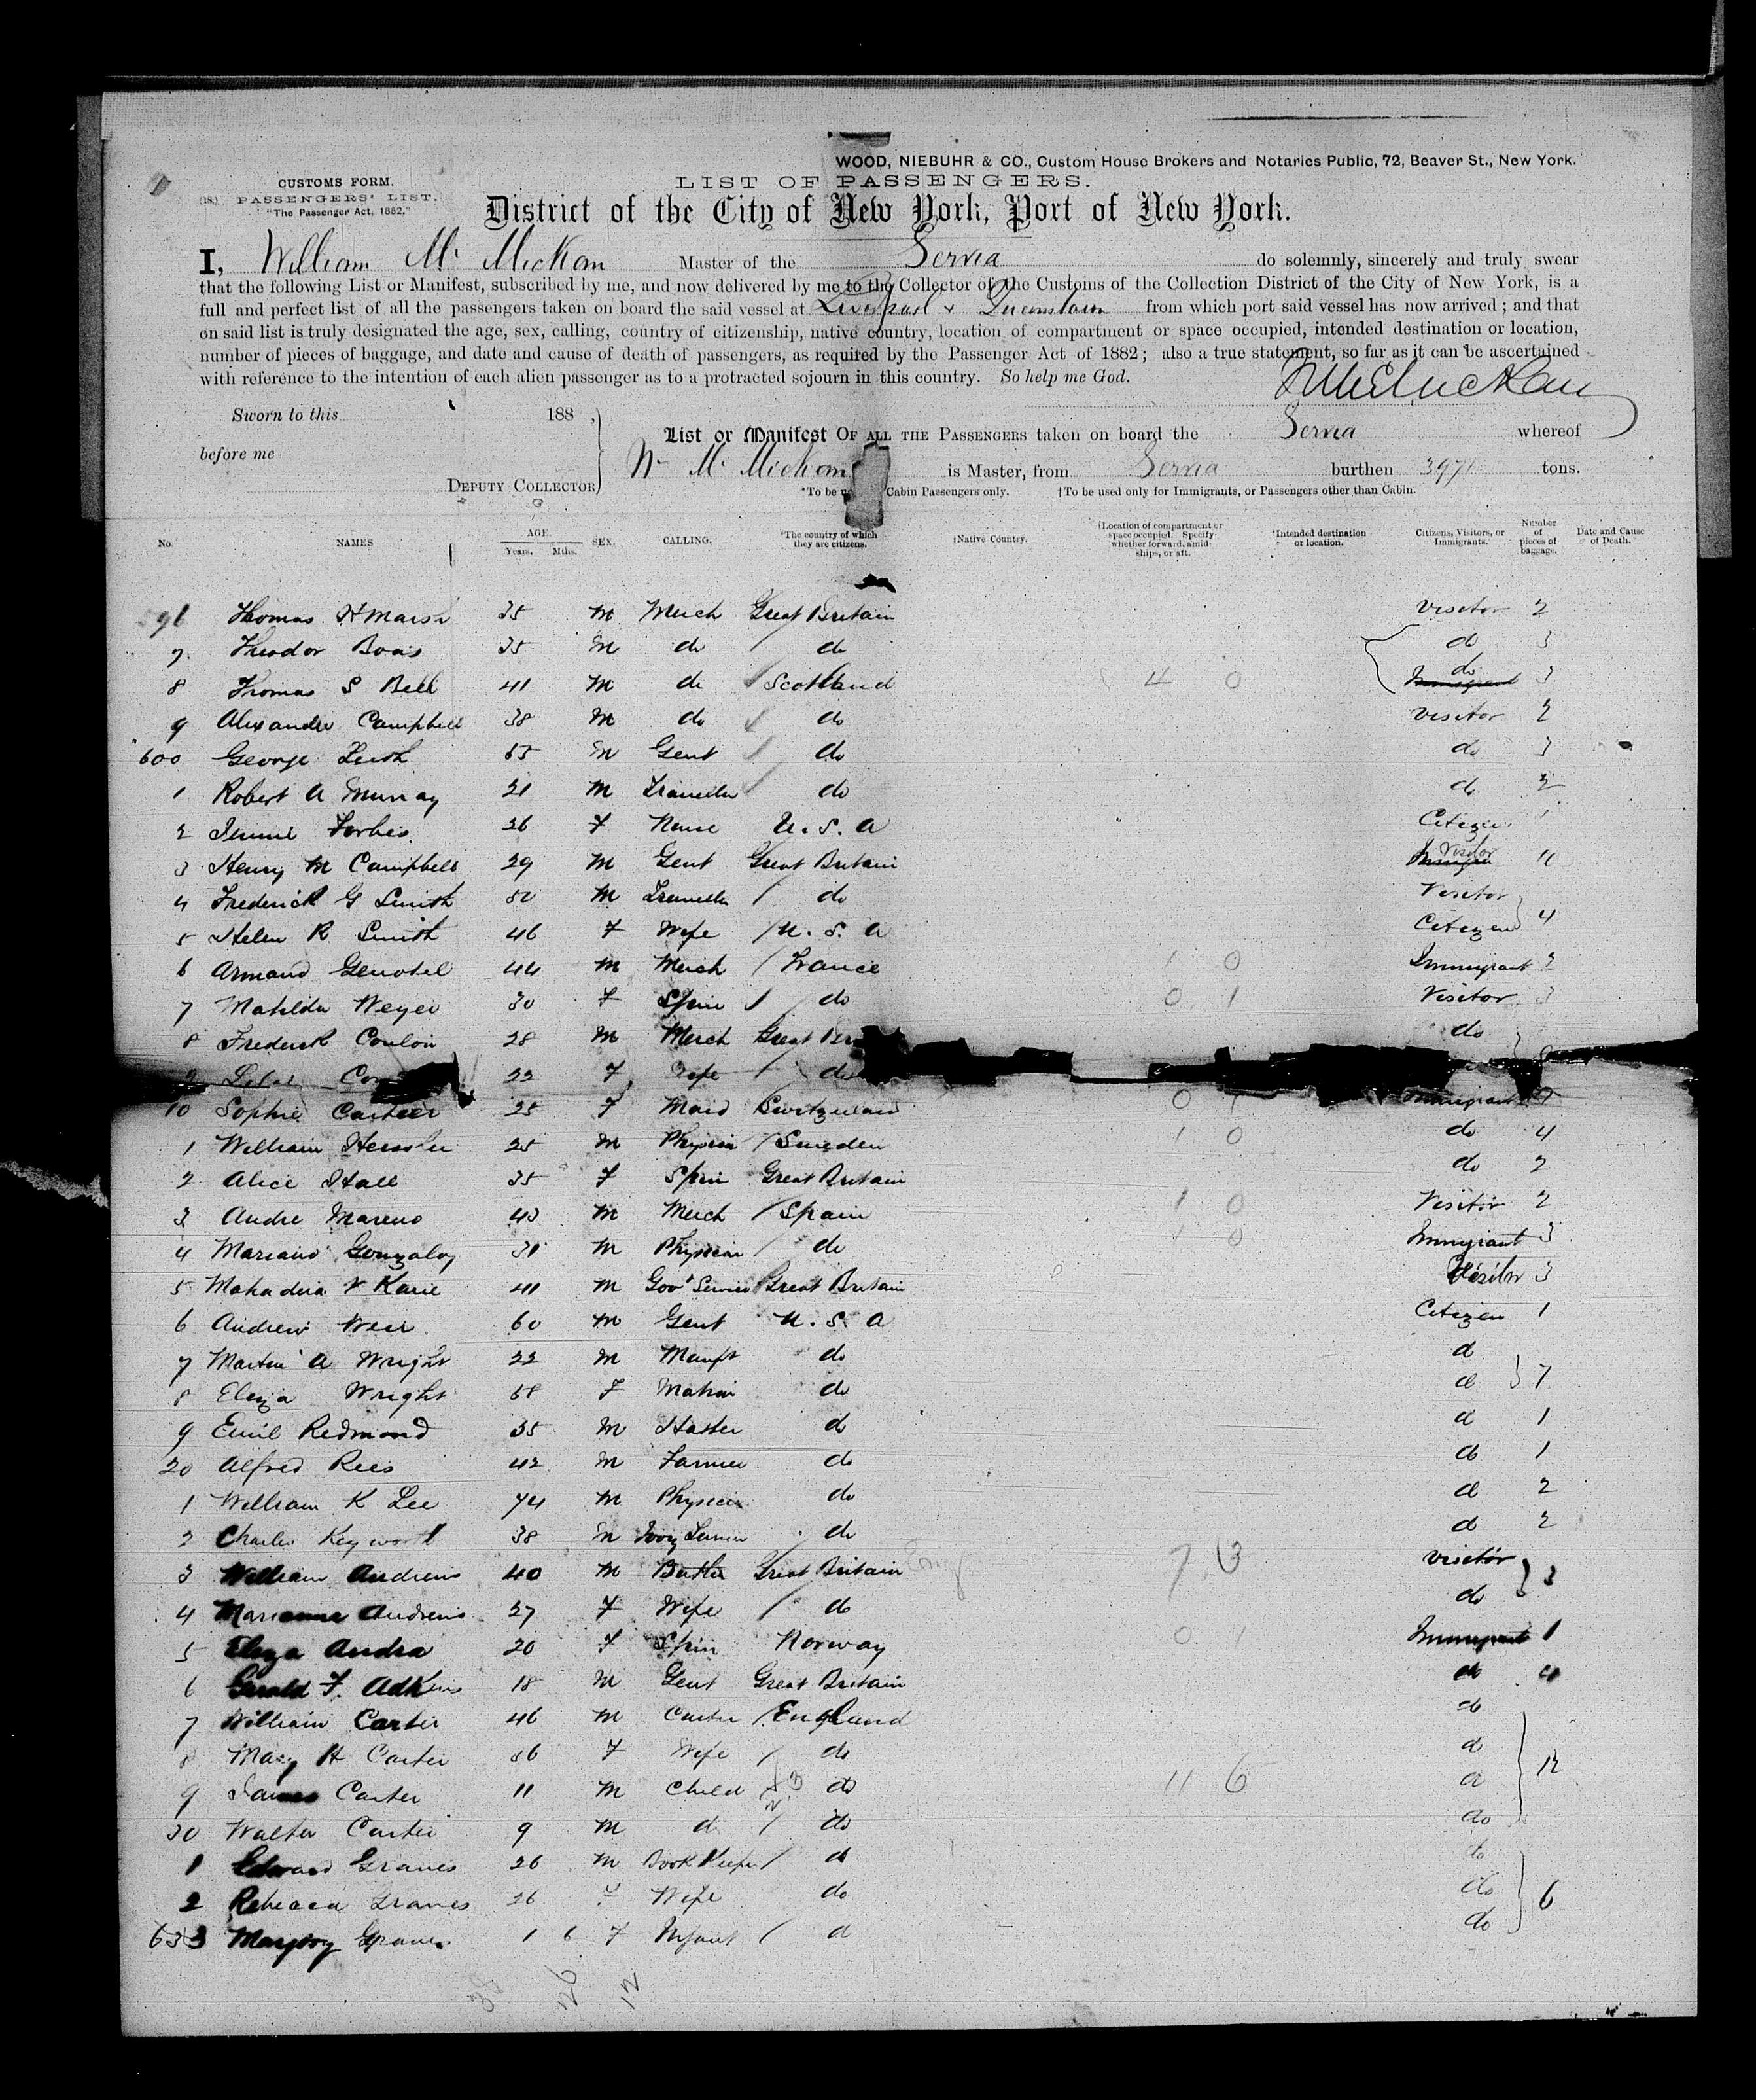 WOOD, NIEBUHR & CO., Custom House Brokers and Notaries Public, 72, Beaver St., New York.
CUSTOMS FORM.
(18.) PASSENGERS' LIST.
"The Passenger Act, 1882."
LIST OF PASSENGERS.
District of the City of New York, Port of New York.
I, William Mc Mickan Master of the Servia do solemnly, sincerely and truly swear
that the following List or Manifest, subscribed by me, and now delivered by me to the Collector of the Customs of the Collection District of the City of New York, is a
full and perfect list of all the passengers taken on board the said vessel at Liverpool & Queenstown from which port said vessel has now arrived; and that
on said list is truly designated the age, sex, calling, country of citizenship, native country, location of compartment or space occupied, intended destination or location,
number of pieces of baggage, and date and cause of death of passengers, as required by the Passenger Act of 1882; also a true statement, so far as it can be ascertained
with reference to the intention of each alien passenger as to a protracted sojourn in this country. So help me God.
Sworn to this 188 ,
before me
DEPUTY COLLECTOR
List or Manifest OF ALL THE PASSENGERS taken on board the Servia whereof
W Mc Mickan is Master, from Servia burthen 397 tons.
*To be Cabin Passengers only. †To be used only for Immigrants, or Passengers other than Cabin.
No. NAMES AGE. Years. Mths. SEX. CALLING. *The country of which they are citizens. †Native Country. †Location of compartment or space occupied. Specify whether forward, amidships, or aft. *Intended destination or location. Citizens, Visitors, or Immigrants. Number of pieces of baggage. Date and Cause of Death.
596 Thomas H Marsh 35 M Merch Great Britain visitor 2
7 Theodor Boas 35 M do do do 3
8 Thomas S Bell 41 M do Scotland 4 0 do 3
9 Alexander Campbell 38 M do do visitor 2
600 George Leith 65 M Gent do do 3
1 Robert A Murray 21 M Traveller do do 2
2 Jennie Forbes 26 F Nurse U.S.A Citizen 1
3 Henry M Campbell 29 M Gent Great Britain Visitor 11
4 Frederick G Smith 50 M Traveller do Visitor
5 Helen R Smith 46 F Wife U.S.A Citizen 4
6 Armand 44 M Merch France 1 0 Immigrant 2
7 Mathilda Weyer 30 F Spin do 0 1 Visitor 3
8 Frederick Coulon 28 M Merch Great Br do
9 22 F Wife do
10 Sophie Cartier 25 F Maid Switzerland 0 1 Immigrant
1 William 25 M Physician Sweden 1 0 do 4
2 Alice Hall 35 F Spin Great Britain do 2
3 Andre Mareno 43 M Merch Spain 1 0 Visitor 2
4 Mariano Gonzaloz 31 M Physician do 1 0 Immigrant 3
5 V Karie 41 M Govt Service Great Britain Visitor 3
6 Andrew Weir 60 M Gent U.S.A Citizen 1
7 Martin A Wright 22 M Manft do d
8 Eliza Wright 58 F Matron do d 7
9 Emil Redmond 35 M Hatter do d 1
20 Alfred Rees 42 M Farmer do do 1
1 William K Lee 74 M Physician do d 2
2 Charles Keyworth 38 M Ivory Turner do d 2
3 William Andrews 40 M Butler Great Britain Eng 7 3 visitor
4 Marianne Andrews 27 F Wife do do 3
5 Eliza Andra 20 F Spin Norway 0 1 Immigrant 1
6 Gerald F. Adkins 18 M Gent Great Britain do 4
7 William Carter 46 M Carter England do
8 Mary H Carter 36 F Wife do d
9 James Carter 11 M Child do 11 6 d 12
30 Walter Carter 9 M d do do
1 Edward Graves 26 M Book Keeper do do
2 Rebecca Graves 26 F Wife do do 6
633 Marjory Graves 1 6 F Infant d do
26 12